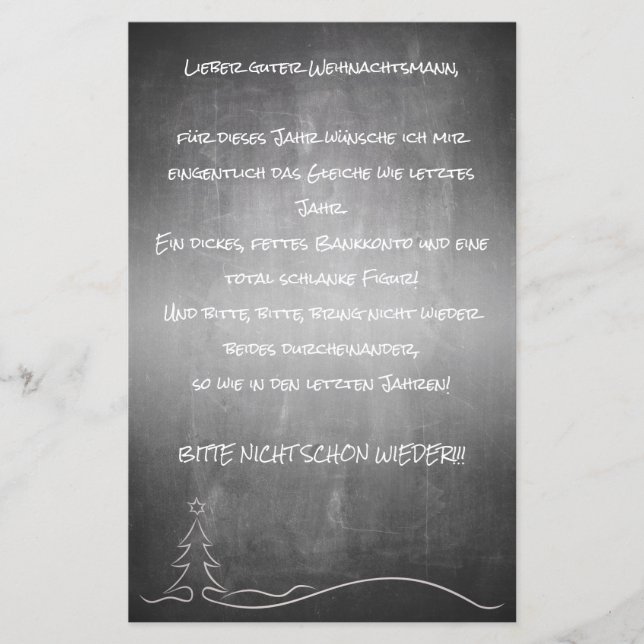 Lieber guter Weihnachtsmann,
für dieses Jahr wünsche ich mir
eingentlich das Gleiche wie letztes
Jahr.
Ein dickes, fettes Bankkonto und eine
total schlanke Figur!
Und bitte, bitte, bring nicht wieder
beides durcheinander,
so wie in den letzten Jahren!
BITTE NICHT SCHON WIEDER!!!